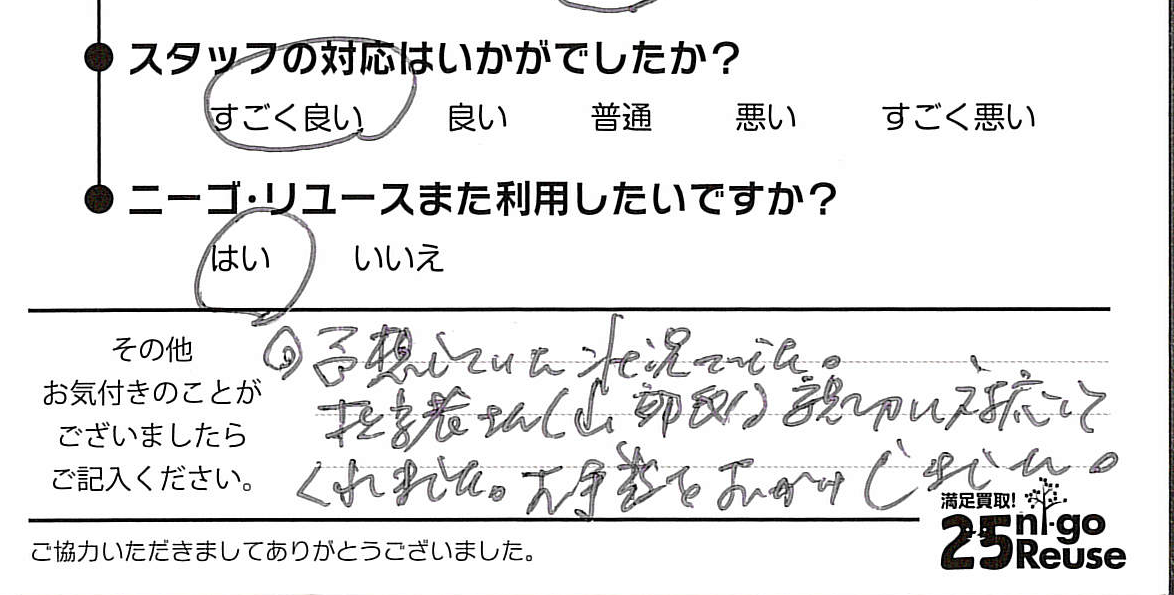 スタッフの対応はいかがでしたか？
すごく良い 良い 普通 悪い すごく悪い
ニーゴ・リユースまた利用したいですか？
はい いいえ
その他
お気付きのことが
ございましたら
ご記入ください。
予想していた状況でした。
担当者さん(山部氏)親切に対応して
くれました。お手数をおかけしました。
満足買取!
25 ni-go
Reuse
ご協力いただきましてありがとうございました。